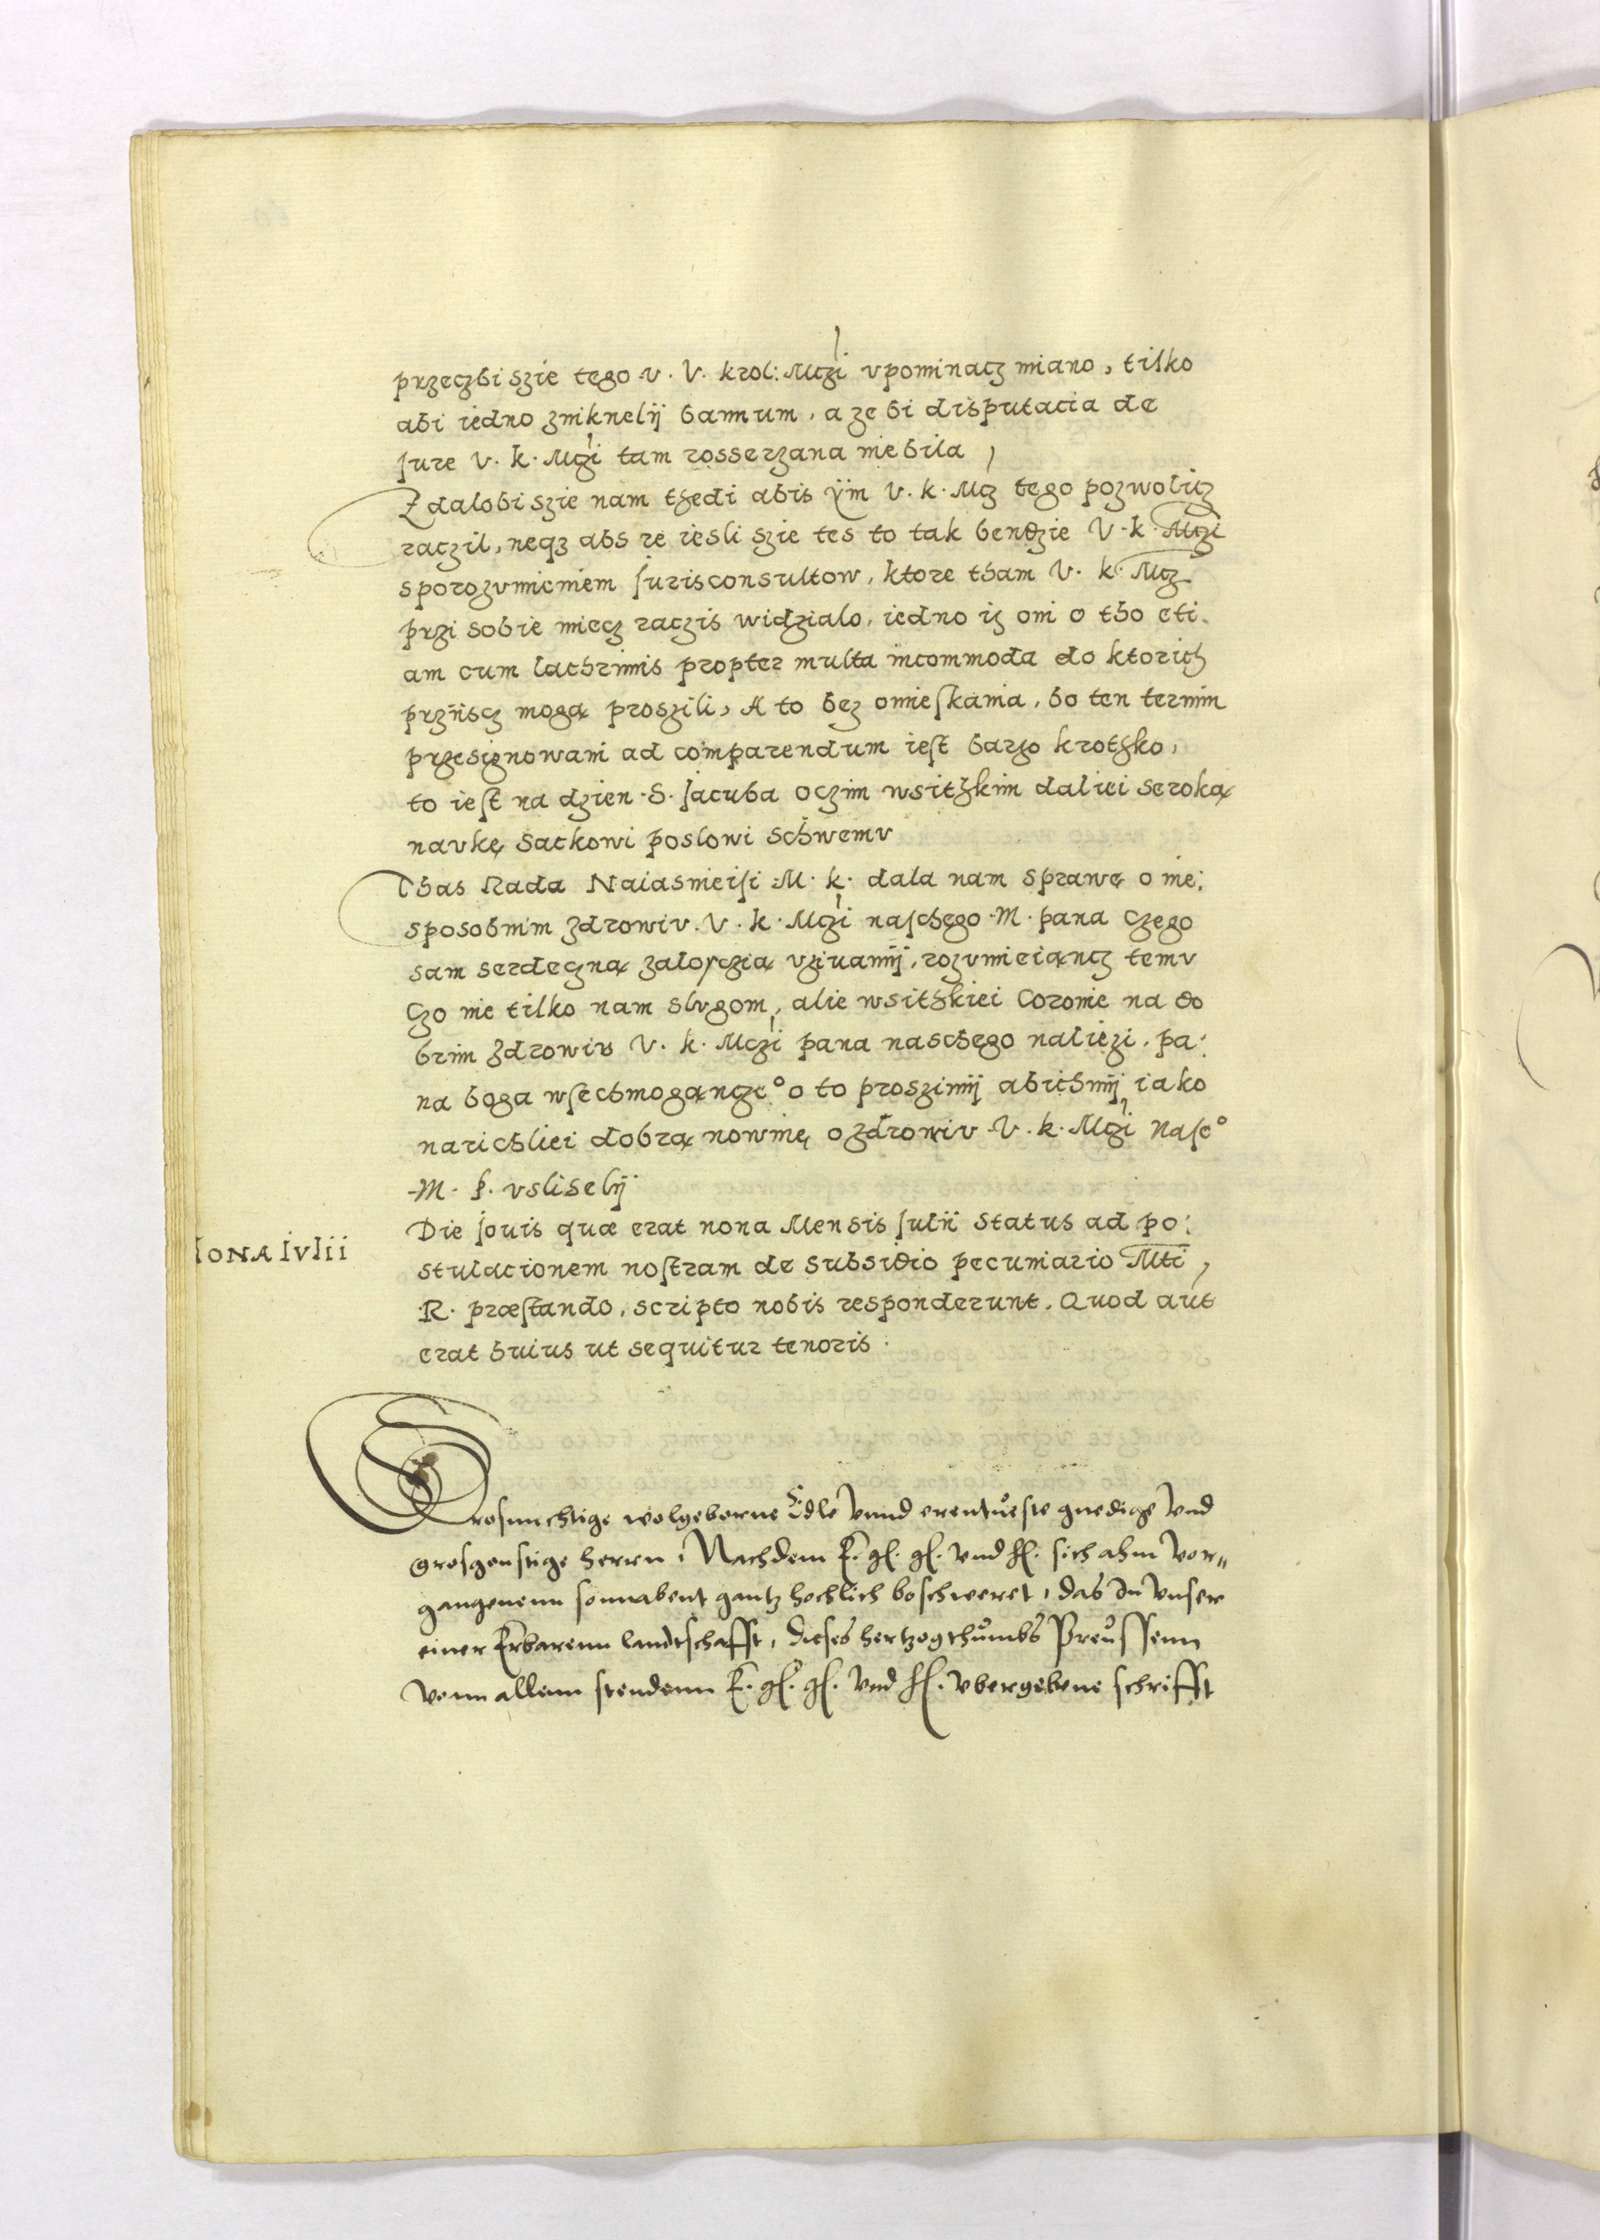 przeczbi szie tego v. V. krol: Mczi vpominacz miano, tilko
abi iedno zniknelÿ bannum, a ze bi disputacia de
Jure V. k. Mczi tam rosserzana nie bila,
Zdalobi szie nam thedi abis ÿm V. k. Mcz tego pozwolicz
raczil, neqz abs re iesli szie tes to tak bendzie V. k. Mczi
sporozvmieniem Jurisconsultow, ktore tham V. k. Mcz
przi sobie miecz raczis widzialo, iedno iz oni o tho eti.
am cum lachrimis propter multa incommoda do ktorich
przÿscz mogą proszili, A to bez omieskania, bo ten termin
przesignowani ad comparendum iest barzo krothko,
to iest na dzien S. Jacuba oczim wsithkim daliei seroką
navkę Sackowi poslowi Schwemv
Thas Rada Naiasnieisi M. k. dala nam sprawę o nie:
sposobnim zdrowiv. V. k. Mczi naschego M. pana Czego
sam serdeczną zalosczią vzivamÿ, rozvmieiąncz temv
Czo nie tilko nam slvgom, alie wsithkiei Coronie na do
brim zdrowiv V. k. Mczi pana naschego naliezi. pa:
na boga wsechmogąncze° o to proszimÿ abichmÿ iako
narichliei dobrą nowinę o zdrowiv V. k. Mczi Nase°
M. p. vsliselÿ
NONA IVlii
Die Jouis quæ erat nona Mensis Julii Status ad po:
stulacionem nostram de subsidio pecuniario Mti,
R. præstando, scripto nobis responderunt. Quod aut
erat huius ut sequitur tenoris.
Grosmechtige wolgeborne Edle vnnd erentueste gnedige vnd
grosgenstige herrn, Nachdem E. gl. gl. vnd hl. sich ahm vor„
gangenenn sonnabent gantz hochlich boschweret, das In vnser
einer Erbarenn landtschafft, dieses hertzogthumbs Preussenn
vonn allenn stendenn E. gl. gl. vnd hl. vbergebene schrifft